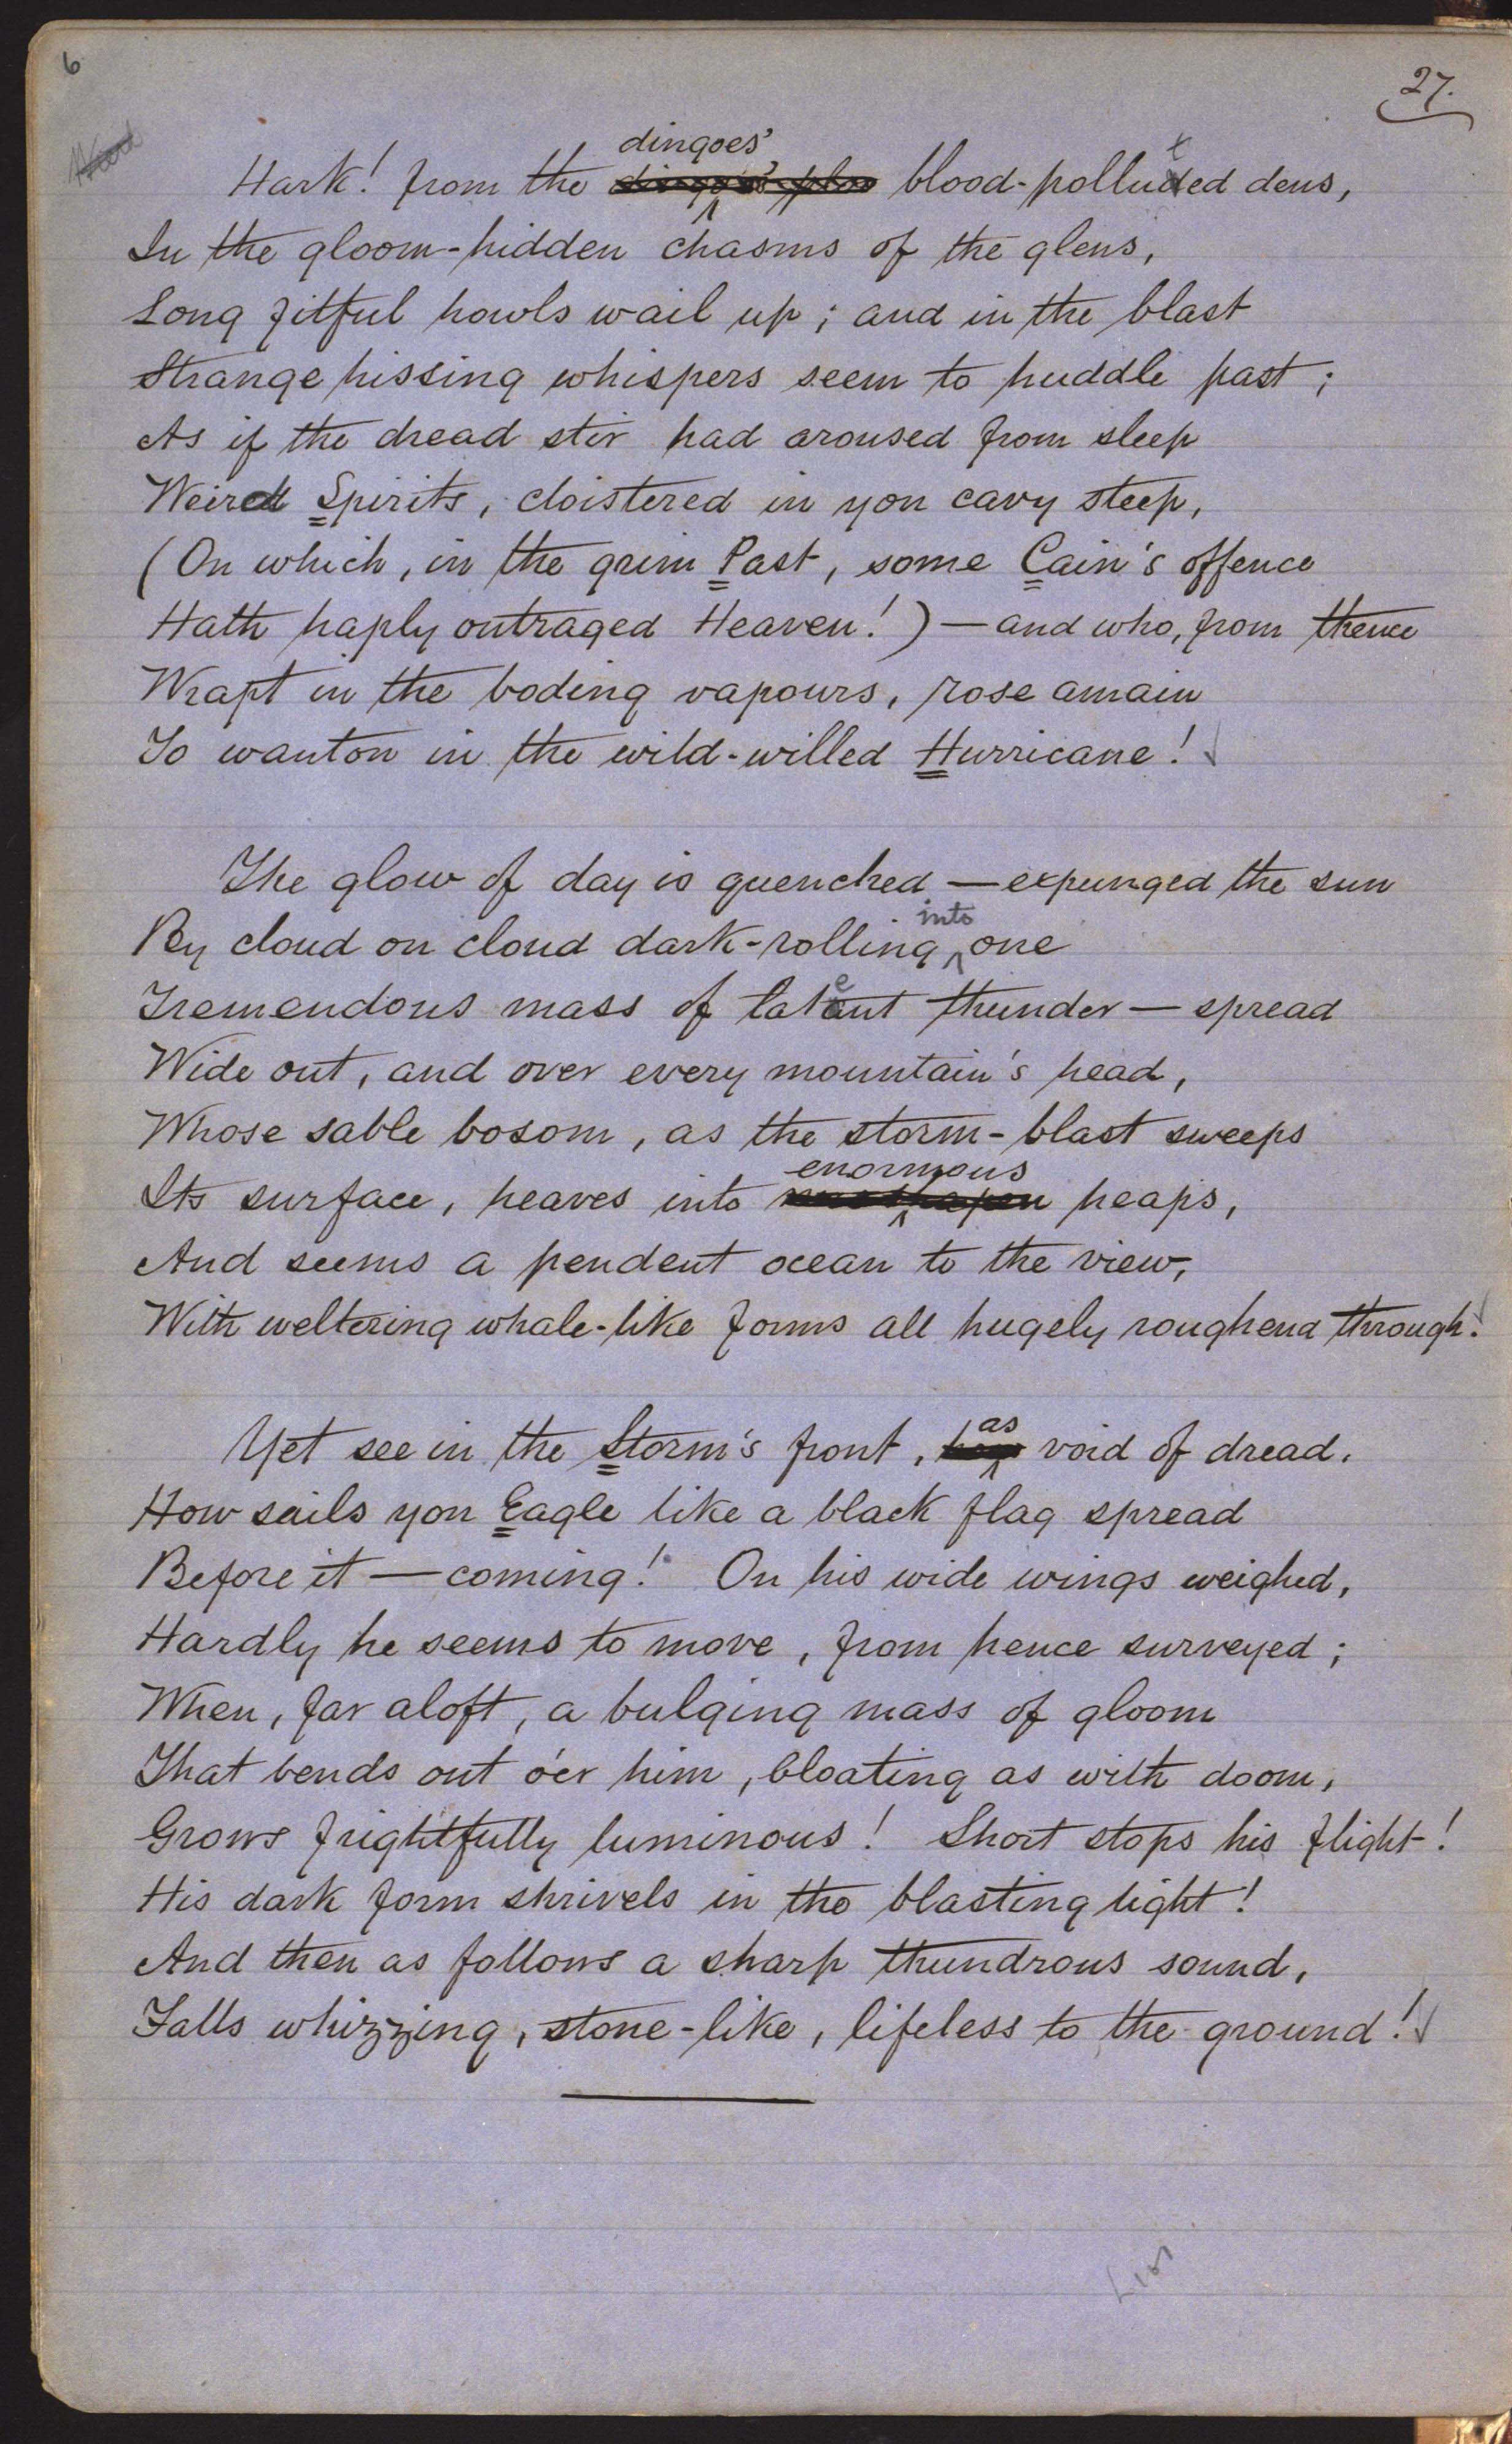 6
27.
dingoes'
Hark! from the blood-polluted dens,
In the gloom-hidden chasms of the glens,
Long fitful howls wail up; and in the blast
Strange hissing whispers seem to huddle past;
As if the dread stir had aroused from sleep
Weird Spirits, cloistered in yon cavy steep,
(On which, in the grim Past, some Cain's offence
Hath haply outraged Heaven!) — and who, from thence
Wrapt in the boding vapours, rose amain
To wanton in the wild-willed Hurricane!
The glow of day is quenched — expunged the sun
into
By cloud on cloud dark-rolling one
Tremendous mass of latent thunder — spread
Wide out, and over every mountain's head,
Whose sable bosom, as the storm-blast sweeps
enormous
Its surface, heaves into heaps,
And seems a pendent ocean to the view,
With weltering whale-like forms all hugely roughend through.
as
Yet see in the Storm's front, void of dread.
How sails yon Eagle like a black flag spread
Before it — coming! On his wide wings weighed,
Hardly he seems to move, from hence surveyed;
When, far aloft, a bulging mass of gloom
That bends out o'er him, bloating as with doom,
Grows frightfully luminous! Short stops his flight!
His dark form shrivels in the blasting light!
And then as follows a sharp thundrous sound,
Falls whizzing, stone-like, lifeless to the ground!